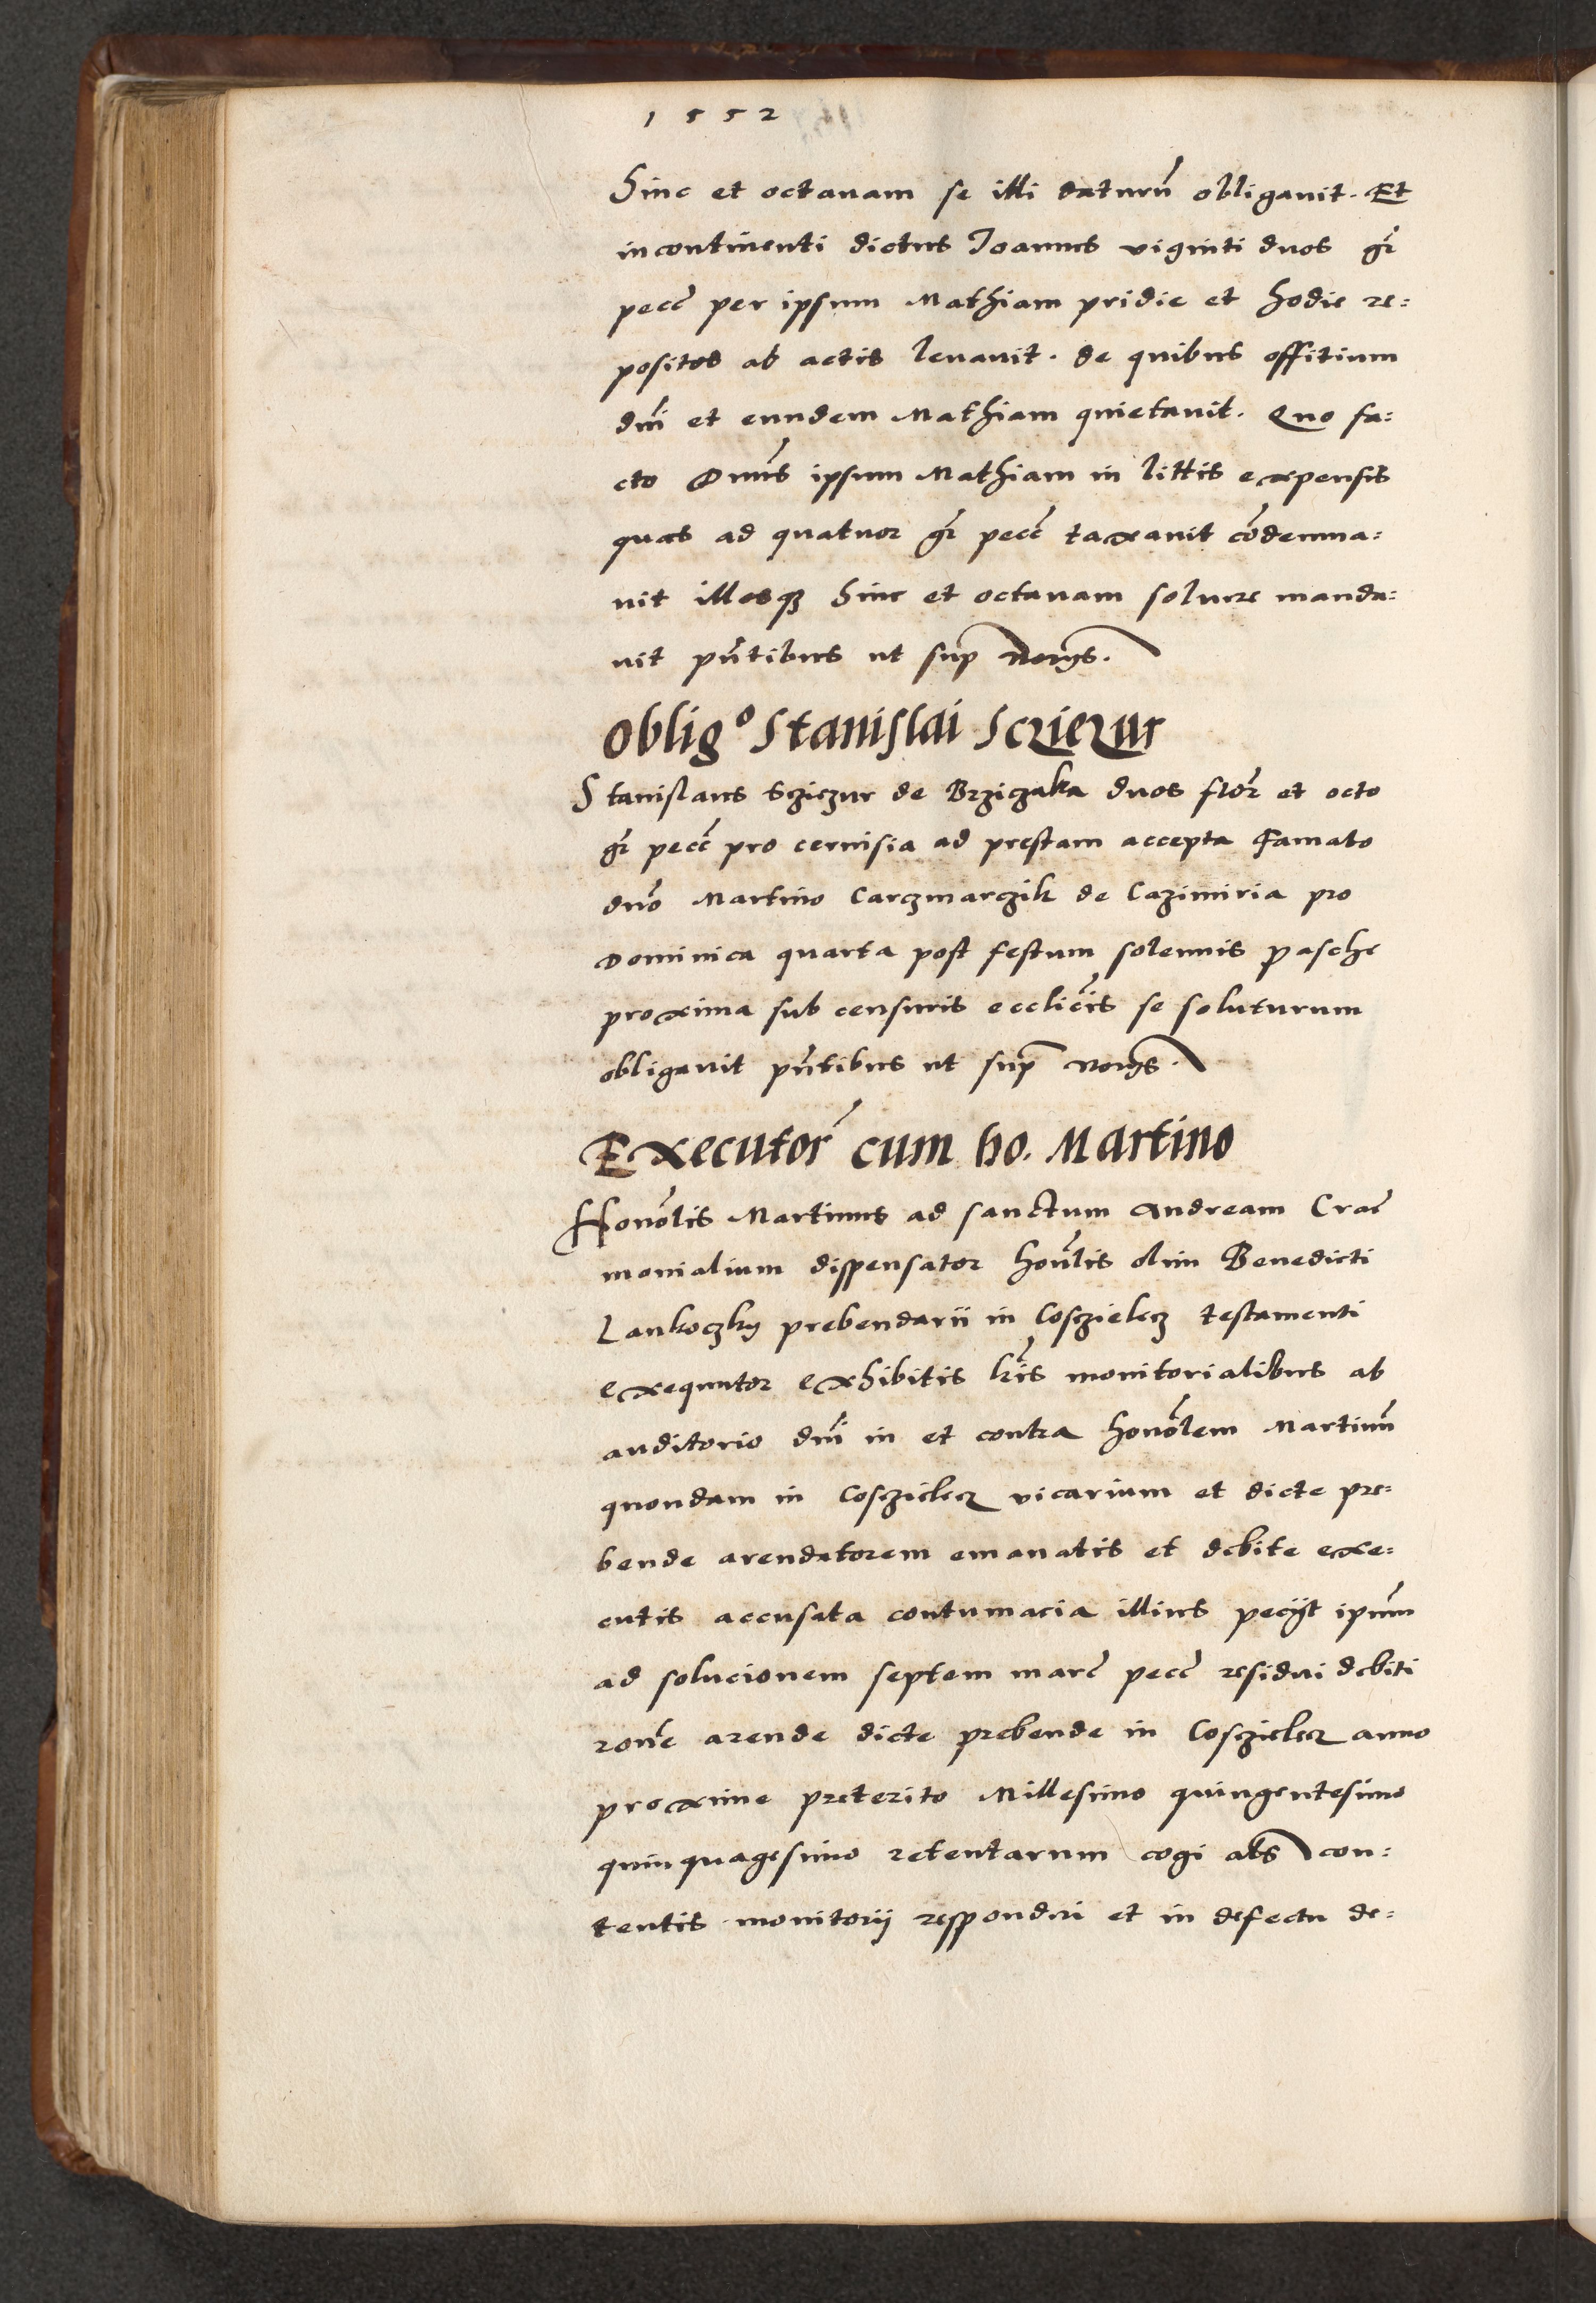 1552
hinc et octavam se illi daturū obligavit. Et
incontinenti dictus Joannes viginti duos gr̄
pecc̄ per ipsum Mathiam pridie et hodie re=
positos ab actis levavit. de quibus offitium
dn̄i et eundem Mathiam quietavit. Quo fa=
cto Dnūs ipsum Mathiam in littis expensis
quas ad quatuor gr̄ pecc̄ taxavit cōdemna=
vit illosqꝫ hinc et octavam solvere manda=
vit pn̄tibus ut sup̄ norijs.
Obligᵒ Stanislai Sczieziur
Stanislaus Scziczur de Brziczaka duos flor̄ et octo
gr̄ pecc̄ pro cervisia ad prestam accepta Famato
dn̄o Martino Carczmarczik de Cazimiria pro
Dominica quarta post festum solennis pasche
proxima sub censuris ecclīcis se soluturum
obligavit pn̄tibus ut sup̄ norijs.
Executor̄ cum ho. Martino
Honōlis Martinus ad sanctum Andream Crac̄
monialium dispensator honōlis olim Benedicti
Lankoczky prebendarii in Cosczielecz testamenti
exequutor exhibitis lr̄is monitorialibus ab
auditorio dn̄i in et contra honōlem Martinū
quondam in Cosczielecz vicarium et dicte pre=
bende arendatorem emanatis et debite exe=
cutis accusata contumacia illius pecijt ipsum
ad solucionem septem marc̄ pecc̄ residui debiti
rōne arende dicte prebende in Cosczielecz anno
proxime preterito Millesimo quingentesimo
quinquagesimo retentarum cogi als con=
tentis monitorij responderi et in defectu de=